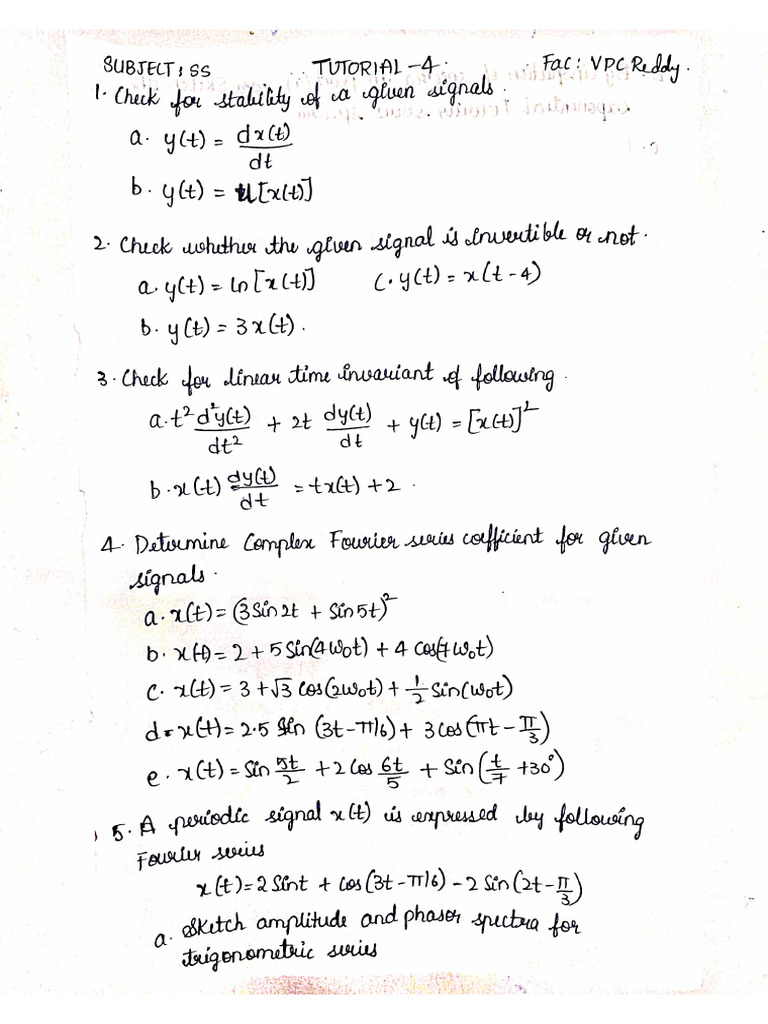 SUBJECT: SS TUTORIAL-4. Fac: VPC Reddy.
1. Check for stability of a given signals.
a. y(t) = dx(t)/dt
b. y(t) = u[x(t)]
2. Check whether the given signal is invertible or not.
a. y(t) = ln[x(t)] c. y(t) = x(t-4)
b. y(t) = 3x(t).
3. Check for linear time invariant of following.
a. t² d²y(t)/dt² + 2t dy(t)/dt + y(t) = [x(t)]²
b. x(t) dy(t)/dt = tx(t) + 2.
4. Determine Complex Fourier series coefficient for given
signals.
a. x(t) = (3 Sin 2t + Sin 5t)²
b. x(t) = 2 + 5 Sin(4ω₀t) + 4 Cos(7ω₀t)
c. x(t) = 3 + √3 Cos(2ω₀t) + 1/2 Sin(ω₀t)
d. x(t) = 2.5 Sin (3t-π/6) + 3 Cos(πt - π/3)
e. x(t) = Sin 5t/2 + 2 Cos 6t/5 + Sin(t/7 + 30°)
5. A periodic signal x(t) is expressed by following
Fourier series
x(t) = 2 Sint + Cos(3t-π/6) - 2 Sin(2t - π/3)
a. Sketch amplitude and phasor spectra for
trigonometric series